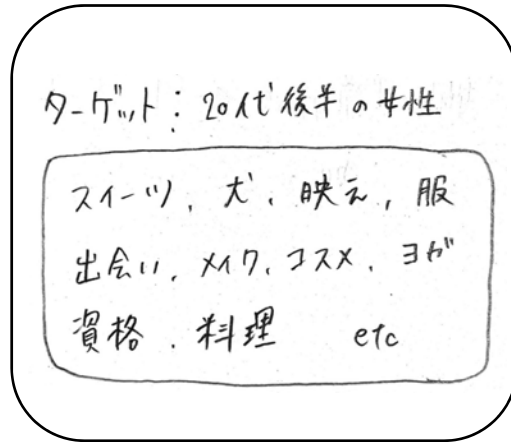 ターゲット：20代後半の女性
スイーツ、犬、映え、服
出会い、メイク、コスメ、ヨガ
資格、料理　etc